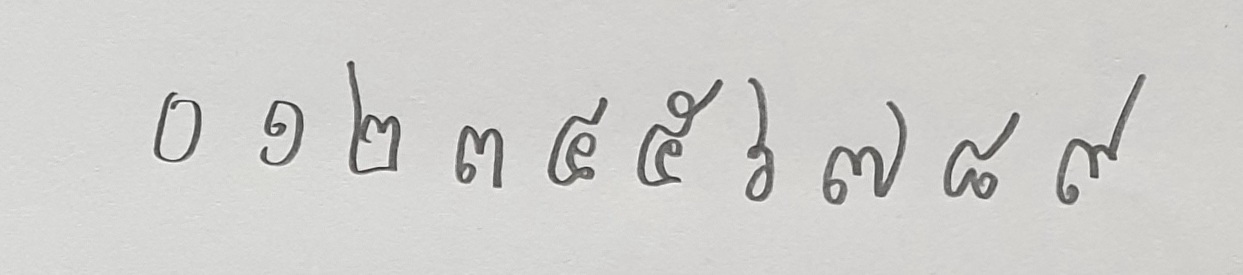 ๐ ๑ ๒ ๓ ๔ ๕ ๖ ๗ ๘ ๙